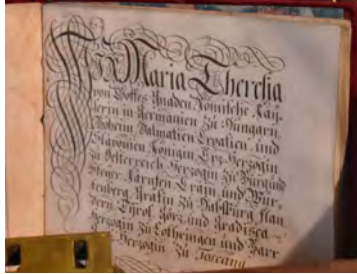 Wir Maria Theresia
von Gottes Gnaden Römische Kay-
serin in Germanien zu Hungarn
Böheim, Dalmatien Croatien und
Slavonien Königin Ertz-Herzogin
zu Oesterreich Herzogin zu Burgund
Steyer Kärnten Crain und Wür-
tenberg Gräfin zu Habspurg Flan
dern Tyrol Görz und Gradisca
Herzogin zu Lothringen und Barr
Herzogin zu Toscana